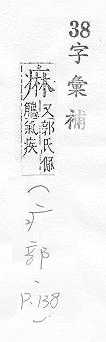 38字彙補
又郭氏佩
觿氣疾
(疒部
P.138